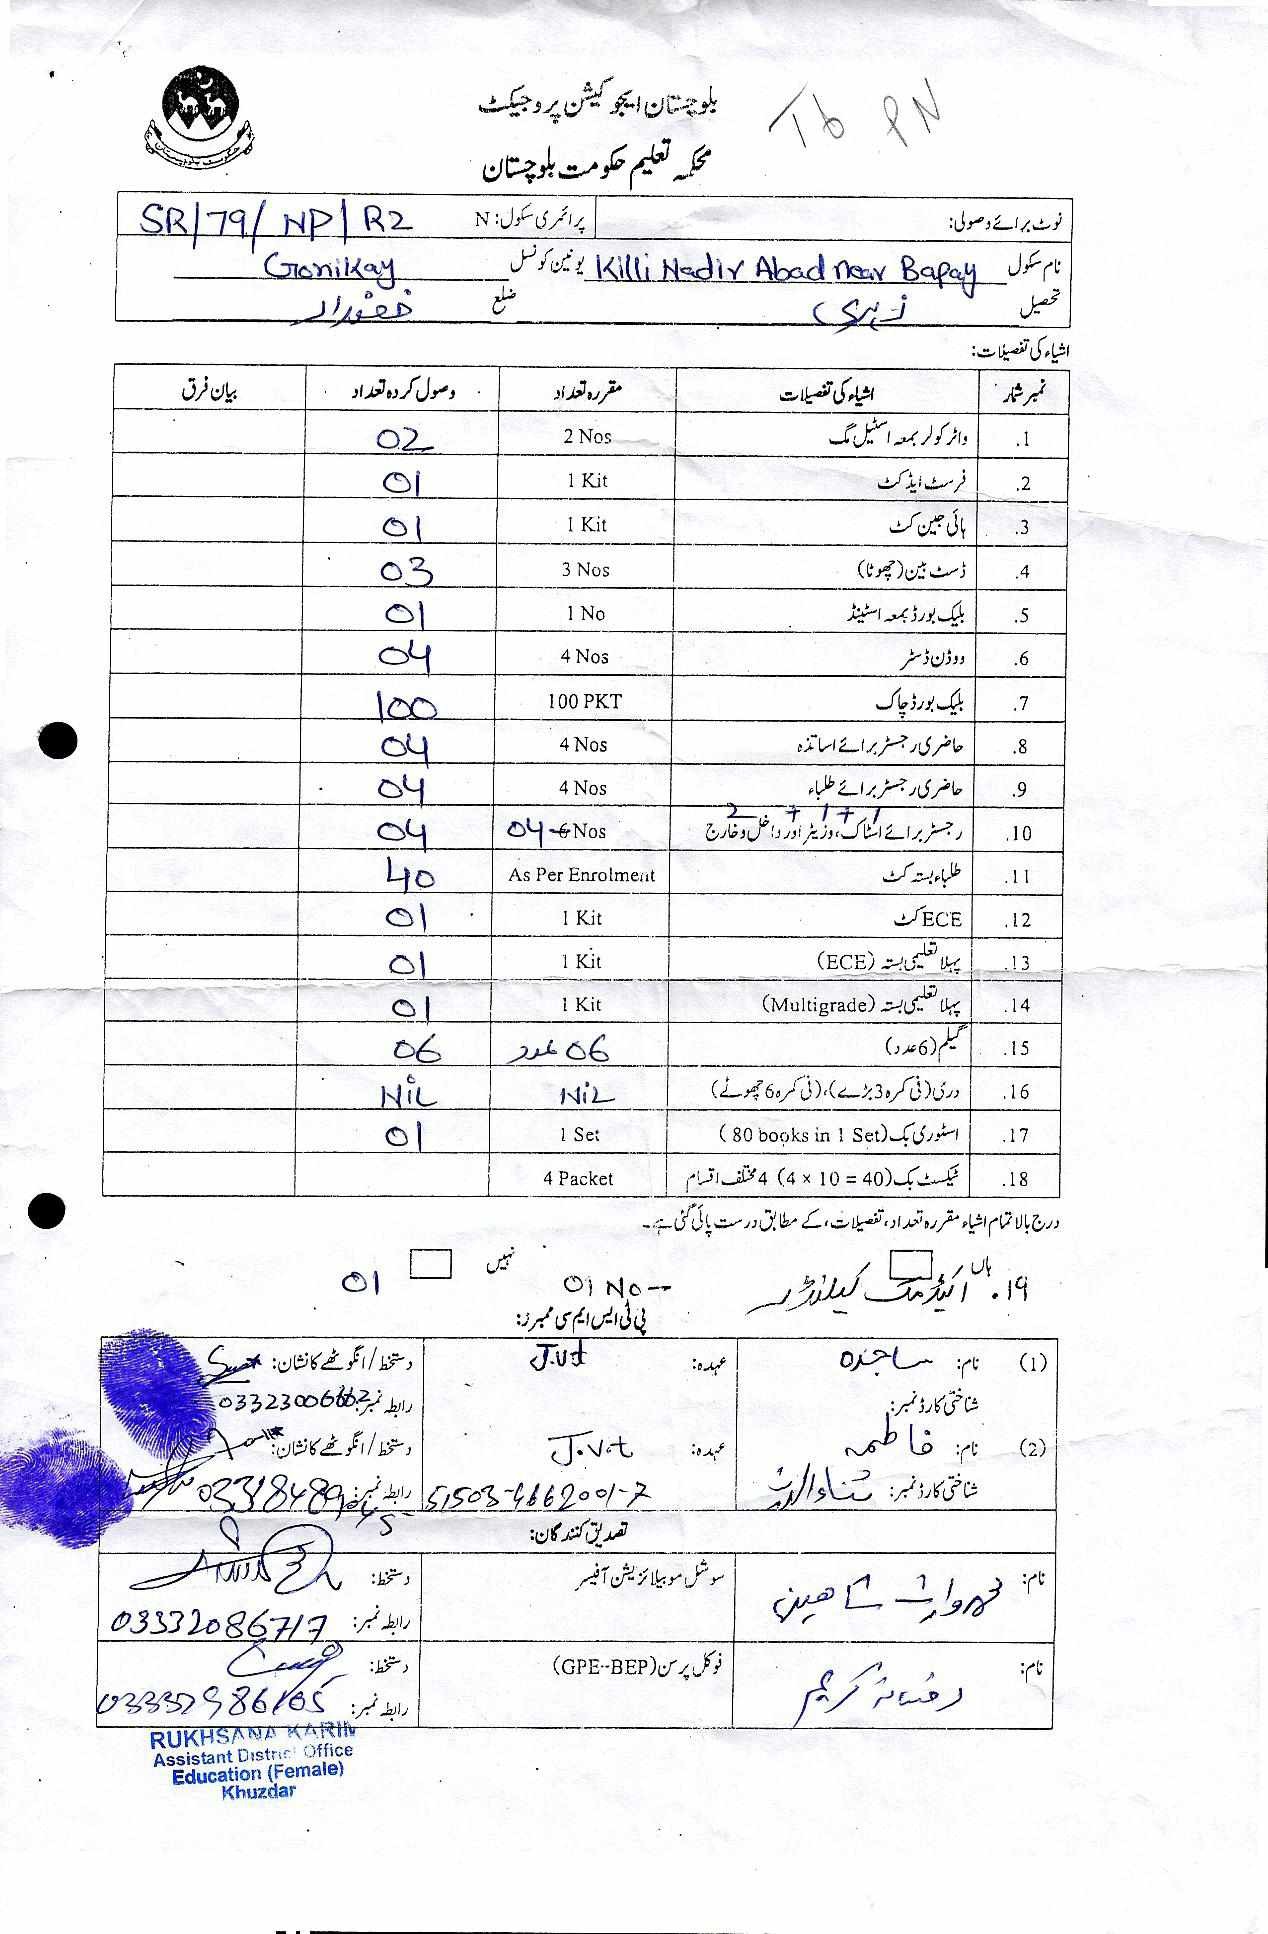 بلوچستان ایجوکیشن پروجیکٹ
T6 PN
محکمہ تعلیم حکومت بلوچستان
نوٹ برائے وصولی: پرائمری سکول: N SR/79/NP/R2
نام سکول Killi Nadir Abad near Bapay یونین کونسل Gonikay
تحصیل زہری ضلع خضدار
اشیاء کی تفصیلات:
نمبر شمار اشیاء کی تفصیلات مقررہ تعداد وصول کردہ تعداد بیان فرق
.1 واٹر کولر بمعہ اسٹیل مگ 2 Nos 02
.2 فرسٹ ایڈ کٹ 1 Kit 01
.3 ہائی جین کٹ 1 Kit 01
.4 ڈسٹ بین (چھوٹا) 3 Nos 03
.5 بلیک بورڈ بمعہ اسٹینڈ 1 No 01
.6 ووڈن ڈسٹر 4 Nos 04
.7 بلیک بورڈ چاک 100 PKT 100
.8 حاضری رجسٹر برائے اساتذہ 4 Nos 04
.9 حاضری رجسٹر برائے طلباء 4 Nos 04
2 + 1 + 1
.10 رجسٹر برائے اسٹاک، وزیٹر اور داخل و خارج 04 6 Nos 04
.11 طلباء بستہ کٹ As Per Enrolment 40
.12 ECE کٹ 1 Kit 01
.13 پہلا تعلیمی بستہ (ECE) 1 Kit 01
.14 پہلا تعلیمی بستہ (Multigrade) 1 Kit 01
.15 گیم (6 عدد) 06 عدد 06
.16 دری (فی کمرہ 3 بڑے)، (فی کمرہ 6 چھوٹے) NiL NiL
.17 اسٹوری بک (80 books in 1 Set) 1 Set 01
.18 ٹیکسٹ بک (4 × 10 = 40) 4 مختلف اقسام 4 Packet
درج بالا تمام اشیاء مقررہ تعداد، تفصیلات، کے مطابق درست پائی گئی ہے۔
ہاں نہیں
۱۹. اکیڈمک کیلنڈر 01 No 01
پی ٹی ایس ایم سی ممبرز:
(1) نام: ساجدہ عہدہ: J.V.t دستخط / انگوٹھے کا نشان:
شناختی کارڈ نمبر: رابطہ نمبر:
(2) نام: فاطمہ عہدہ: J.V.t دستخط / انگوٹھے کا نشان:
شناختی کارڈ نمبر: ثناء اللہ 51503-4662001-7 رابطہ نمبر:
تصدیق کنندگان:
نام: شاہین سوشل موبیلائزیشن آفیسر دستخط:
رابطہ نمبر: 03332086717
نام: رخسانہ کریم فوکل پرسن (GPE-BEP) دستخط:
رابطہ نمبر: 03332986105
RUKHSANA KARIM
Assistant District Office
Education (Female)
Khuzdar